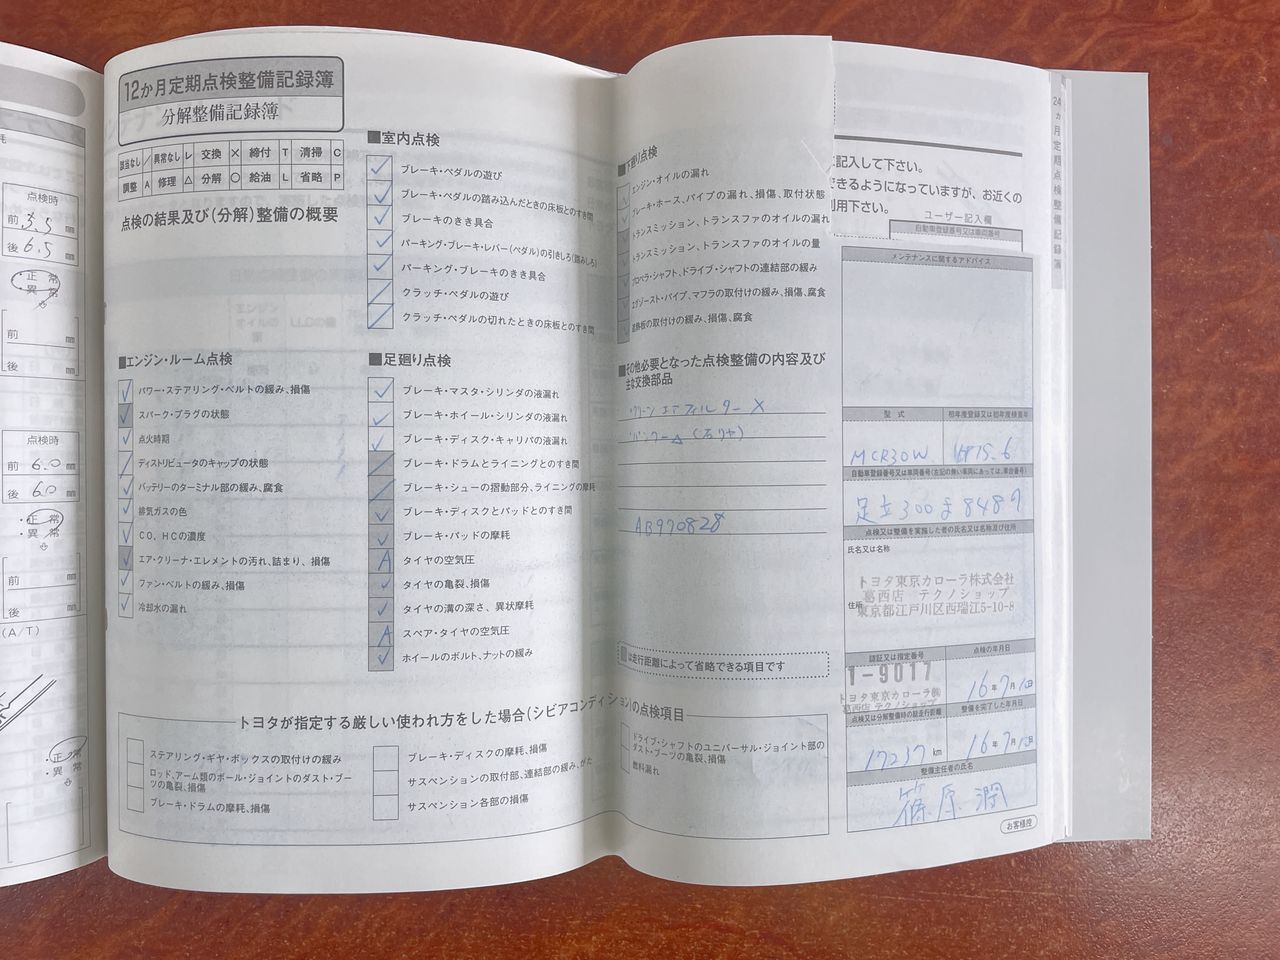 点検時
前 3.5 mm
後 6.5 mm
正常
異常
前 mm
後 mm
点検時
前 6.0 mm
後 6.0 mm
・正常
・異常
前 mm
後 mm
(A/T)
・正常
・異常
12か月定期点検整備記録簿
分解整備記録簿
該当なし / 異常なし レ 交換 × 締付 T 清掃 C
調整 A 修理 △ 分解 ○ 給油 L 省略 P
点検の結果及び(分解)整備の概要
■エンジン・ルーム点検
パワー・ステアリング・ベルトの緩み、損傷
スパーク・プラグの状態
点火時期
ディストリビュータのキャップの状態
バッテリーのターミナル部の緩み、腐食
排気ガスの色
CO、HCの濃度
エア・クリーナ・エレメントの汚れ、詰まり、損傷
ファン・ベルトの緩み、損傷
冷却水の漏れ
■室内点検
ブレーキ・ペダルの遊び
ブレーキ・ペダルの踏み込んだときの床板とのすき間
ブレーキのきき具合
パーキング・ブレーキ・レバー(ペダル)の引きしろ(踏みしろ)
パーキング・ブレーキのきき具合
クラッチ・ペダルの遊び
クラッチ・ペダルの切れたときの床板とのすき間
■足廻り点検
ブレーキ・マスタ・シリンダの液漏れ
ブレーキ・ホイール・シリンダの液漏れ
ブレーキ・ディスク・キャリパの液漏れ
ブレーキ・ドラムとライニングとのすき間
ブレーキ・シューの摺動部分、ライニングの摩耗
ブレーキ・ディスクとパッドとのすき間
ブレーキ・パッドの摩耗
A タイヤの空気圧
タイヤの亀裂、損傷
タイヤの溝の深さ、異状摩耗
A スペア・タイヤの空気圧
ホイールのボルト、ナットの緩み
■下廻り点検
エンジン・オイルの漏れ
ブレーキ・ホース、パイプの漏れ、損傷、取付状態
トランスミッション、トランスファのオイルの漏れ
トランスミッション、トランスファのオイルの量
プロペラ・シャフト、ドライブ・シャフトの連結部の緩み
エグゾースト・パイプ、マフラの取付けの緩み、損傷、腐食
遮熱板の取付けの緩み、損傷、腐食
■その他必要となった点検整備の内容及び
主な交換部品
クリーンエアフィルター ×
バンパー△ (右リヤ)
AB970828
は走行距離によって省略できる項目です
トヨタが指定する厳しい使われ方をした場合(シビアコンディション)の点検項目
ステアリング・ギヤ・ボックスの取付けの緩み
ロッド、アーム類のボール・ジョイントのダスト・ブー
ツの亀裂、損傷
ブレーキ・ドラムの摩耗、損傷
ブレーキ・ディスクの摩耗、損傷
サスペンションの取付部、連結部の緩み、がた
サスペンション各部の損傷
ドライブ・シャフトのユニバーサル・ジョイント部の
ダスト・ブーツの亀裂、損傷
燃料漏れ
に記入して下さい。
できるようになっていますが、お近くの
利用下さい。
ユーザー記入欄
自動車登録番号又は車両番号
メンテナンスに関するアドバイス
型式 初年度登録又は初年度検査年
MCR30W H15.6
自動車登録番号又は車両番号(左記の無い車両にあっては、車台番号)
足立300ま8489
点検又は整備を実施した者の氏名又は名称及び住所
氏名又は名称
トヨタ東京カローラ株式会社
葛西店 テクノショップ
住所
東京都江戸川区西瑞江5-10-8
認証又は指定番号 点検の年月日
1-9017
トヨタ東京カローラ㈱
葛西店テクノショップ
16年7月1日
点検又は分解整備時の総走行距離 整備を完了した年月日
17237 km 16年7月1日
整備主任者の氏名
篠原 潤
お客様控
24ヵ月定期点検整備記録簿